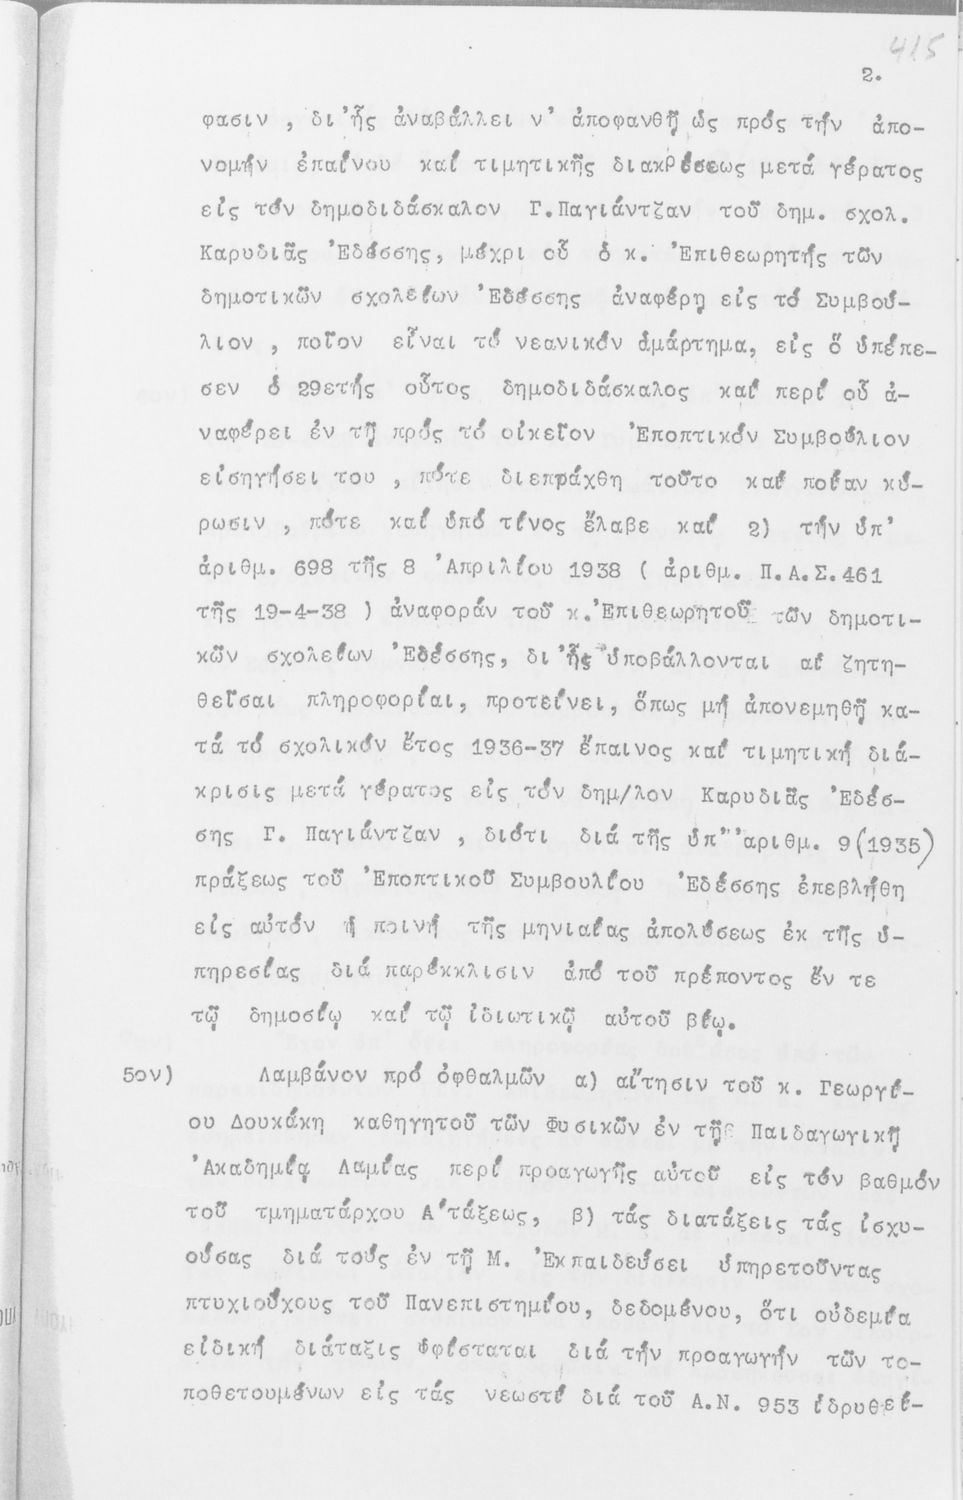 415
2.
φασιν , δι'ἧς ἀναβάλλει ν' ἀποφανθῇ ὡς πρός τήν ἀπο-
νομήν ἐπαίνου καί τιμητικῆς διακρίσεως μετά γέρατος
εἰς τόν δημοδιδάσκαλον Γ.Παγιάντζαν τοῦ δημ. σχολ.
Καρυδιᾶς 'Εδέσσης, μέχρι οὗ ὁ κ. 'Επιθεωρητής τῶν
δημοτικῶν σχολείων 'Εδέσσης ἀναφέρῃ εἰς τό Συμβού-
λιον , ποῖον εἶναι τό νεανικόν ἁμάρτημα, εἰς ὅ ὑπέπε-
σεν ὁ 29ετής οὗτος δημοδιδάσκαλος καί περί οὗ ἀ-
ναφέρει ἐν τῇ πρός τό οἰκεῖον 'Εποπτικόν Συμβούλιον
εἰσηγήσει του , πότε διεπράχθη τοῦτο καί ποίαν κύ-
ρωσιν , πότε καί ὑπό τίνος ἔλαβε καί 2) τήν ὑπ'
ἀριθμ. 698 τῆς 8 'Απριλίου 1938 ( ἀριθμ. Π.Α.Σ.461
τῆς 19-4-38 ) ἀναφοράν τοῦ κ.'Επιθεωρητοῦ τῶν δημοτι-
κῶν σχολείων 'Εδέσσης, δι'ἧς ὑποβάλλονται αἱ ζητη-
θεῖσαι πληροφορίαι, προτείνει, ὅπως μή ἀπονεμηθῇ κα-
τά τό σχολικόν ἔτος 1936-37 ἔπαινος καί τιμητική διά-
κρισις μετά γέρατος εἰς τόν δημ/λον Καρυδιᾶς 'Εδέσ-
σης Γ. Παγιάντζαν , διότι διά τῆς ὑπ''αριθμ. 9(1935)
πράξεως τοῦ 'Εποπτικοῦ Συμβουλίου 'Εδέσσης ἐπεβλήθη
εἰς αὐτόν ἡ ποινή τῆς μηνιαίας ἀπολύσεως ἐκ τῆς ὑ-
πηρεσίας διά παρέκκλισιν ἀπό τοῦ πρέποντος ἔν τε
τῷ δημοσίῳ καί τῷ ἰδιωτικῷ αὐτοῦ βίῳ.
5ον) Λαμβάνον πρό ὀφθαλμῶν α) αἴτησιν τοῦ κ. Γεωργί-
ου Δουκάκη καθηγητοῦ τῶν Φυσικῶν ἐν τῇ Παιδαγωγικῇ
'Ακαδημίᾳ Λαμίας περί προαγωγῆς αὐτοῦ εἰς τόν βαθμόν
τοῦ τμηματάρχου Α'τάξεως, β) τάς διατάξεις τάς ἰσχυ-
ούσας διά τούς ἐν τῇ Μ. 'Εκπαιδεύσει ὑπηρετοῦντας
πτυχιούχους τοῦ Πανεπιστημίου, δεδομένου, ὅτι οὐδεμία
εἰδική διάταξις ὑφίσταται διά τήν προαγωγήν τῶν το-
ποθετουμένων εἰς τάς νεωστί διά τοῦ Α.Ν. 953 ἱδρυθεί-